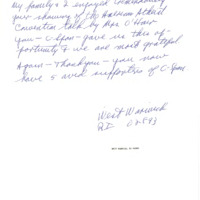 My family & I enjoyed
your showing of the American Atheist
Convention talk by Mrs O'Hair
You - C-Span - gave us this op-
portunity & we are most grateful
Again - Thank you - you now
have 5 avid supporters of C-Span
West Warwick
RI 02893